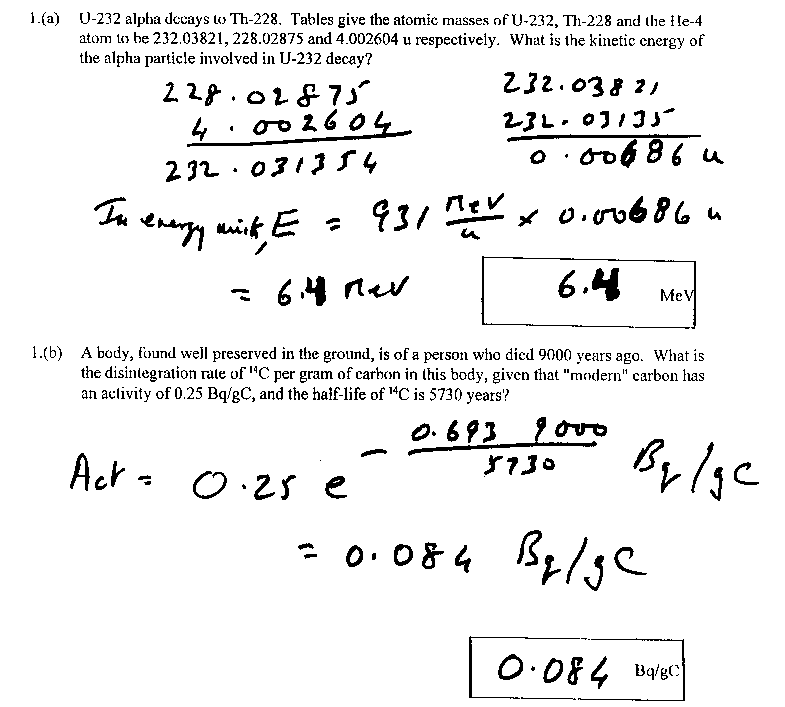 1.(a) U-232 alpha decays to Th-228. Tables give the atomic masses of U-232, Th-228 and the He-4
atom to be 232.03821, 228.02875 and 4.002604 u respectively. What is the kinetic energy of
the alpha particle involved in U-232 decay?
228.02875
4.002604
232.031354
232.03821
232.03135
0.00686 u
In energy unit, E = 931 MeV/u × 0.00686 u
= 6.4 MeV
6.4 MeV
1.(b) A body, found well preserved in the ground, is of a person who died 9000 years ago. What is
the disintegration rate of ¹⁴C per gram of carbon in this body, given that "modern" carbon has
an activity of 0.25 Bq/gC, and the half-life of ¹⁴C is 5730 years?
Act = 0.25 e – 0.693 9000 / 5730 Bq/gC
= 0.084 Bq/gC
0.084 Bq/gC